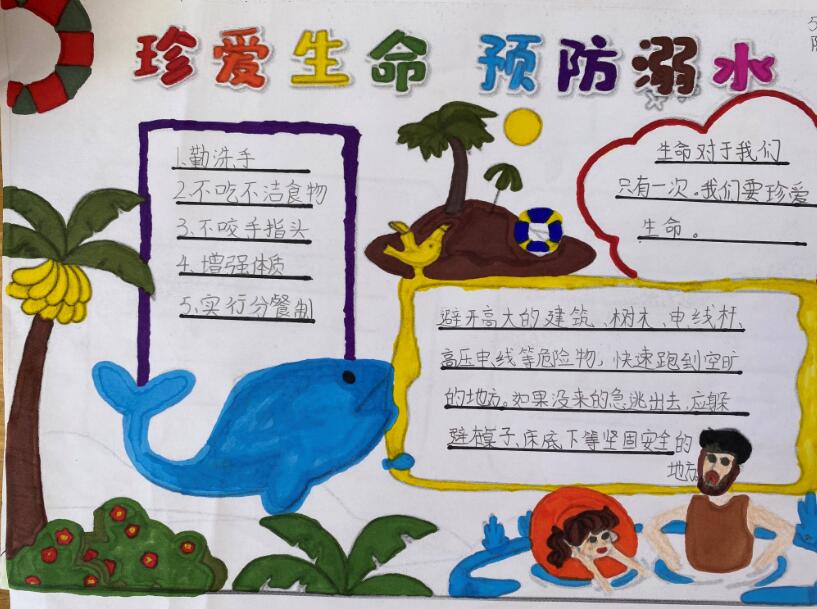 珍爱生命 预防溺水
1.勤洗手
2.不吃不洁食物
3.不咬手指头
4.增强体质
5.实行分餐制
生命对于我们
只有一次。我们要珍爱
生命。
避开高大的建筑、树木、电线杆、
高压电线等危险物，快速跑到空旷
的地方。如果没来的急逃出去，应躲
避桌子、床底下等坚固安全的
地方。